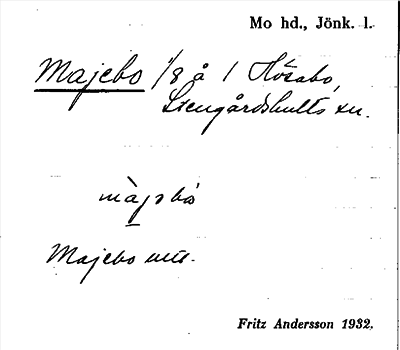 Mo hd., Jönk. l.
Majebo 1/8 å 1 Hösabo,
Stengårdshults sn.
màjebo
Majebo
Fritz Andersson 1932.